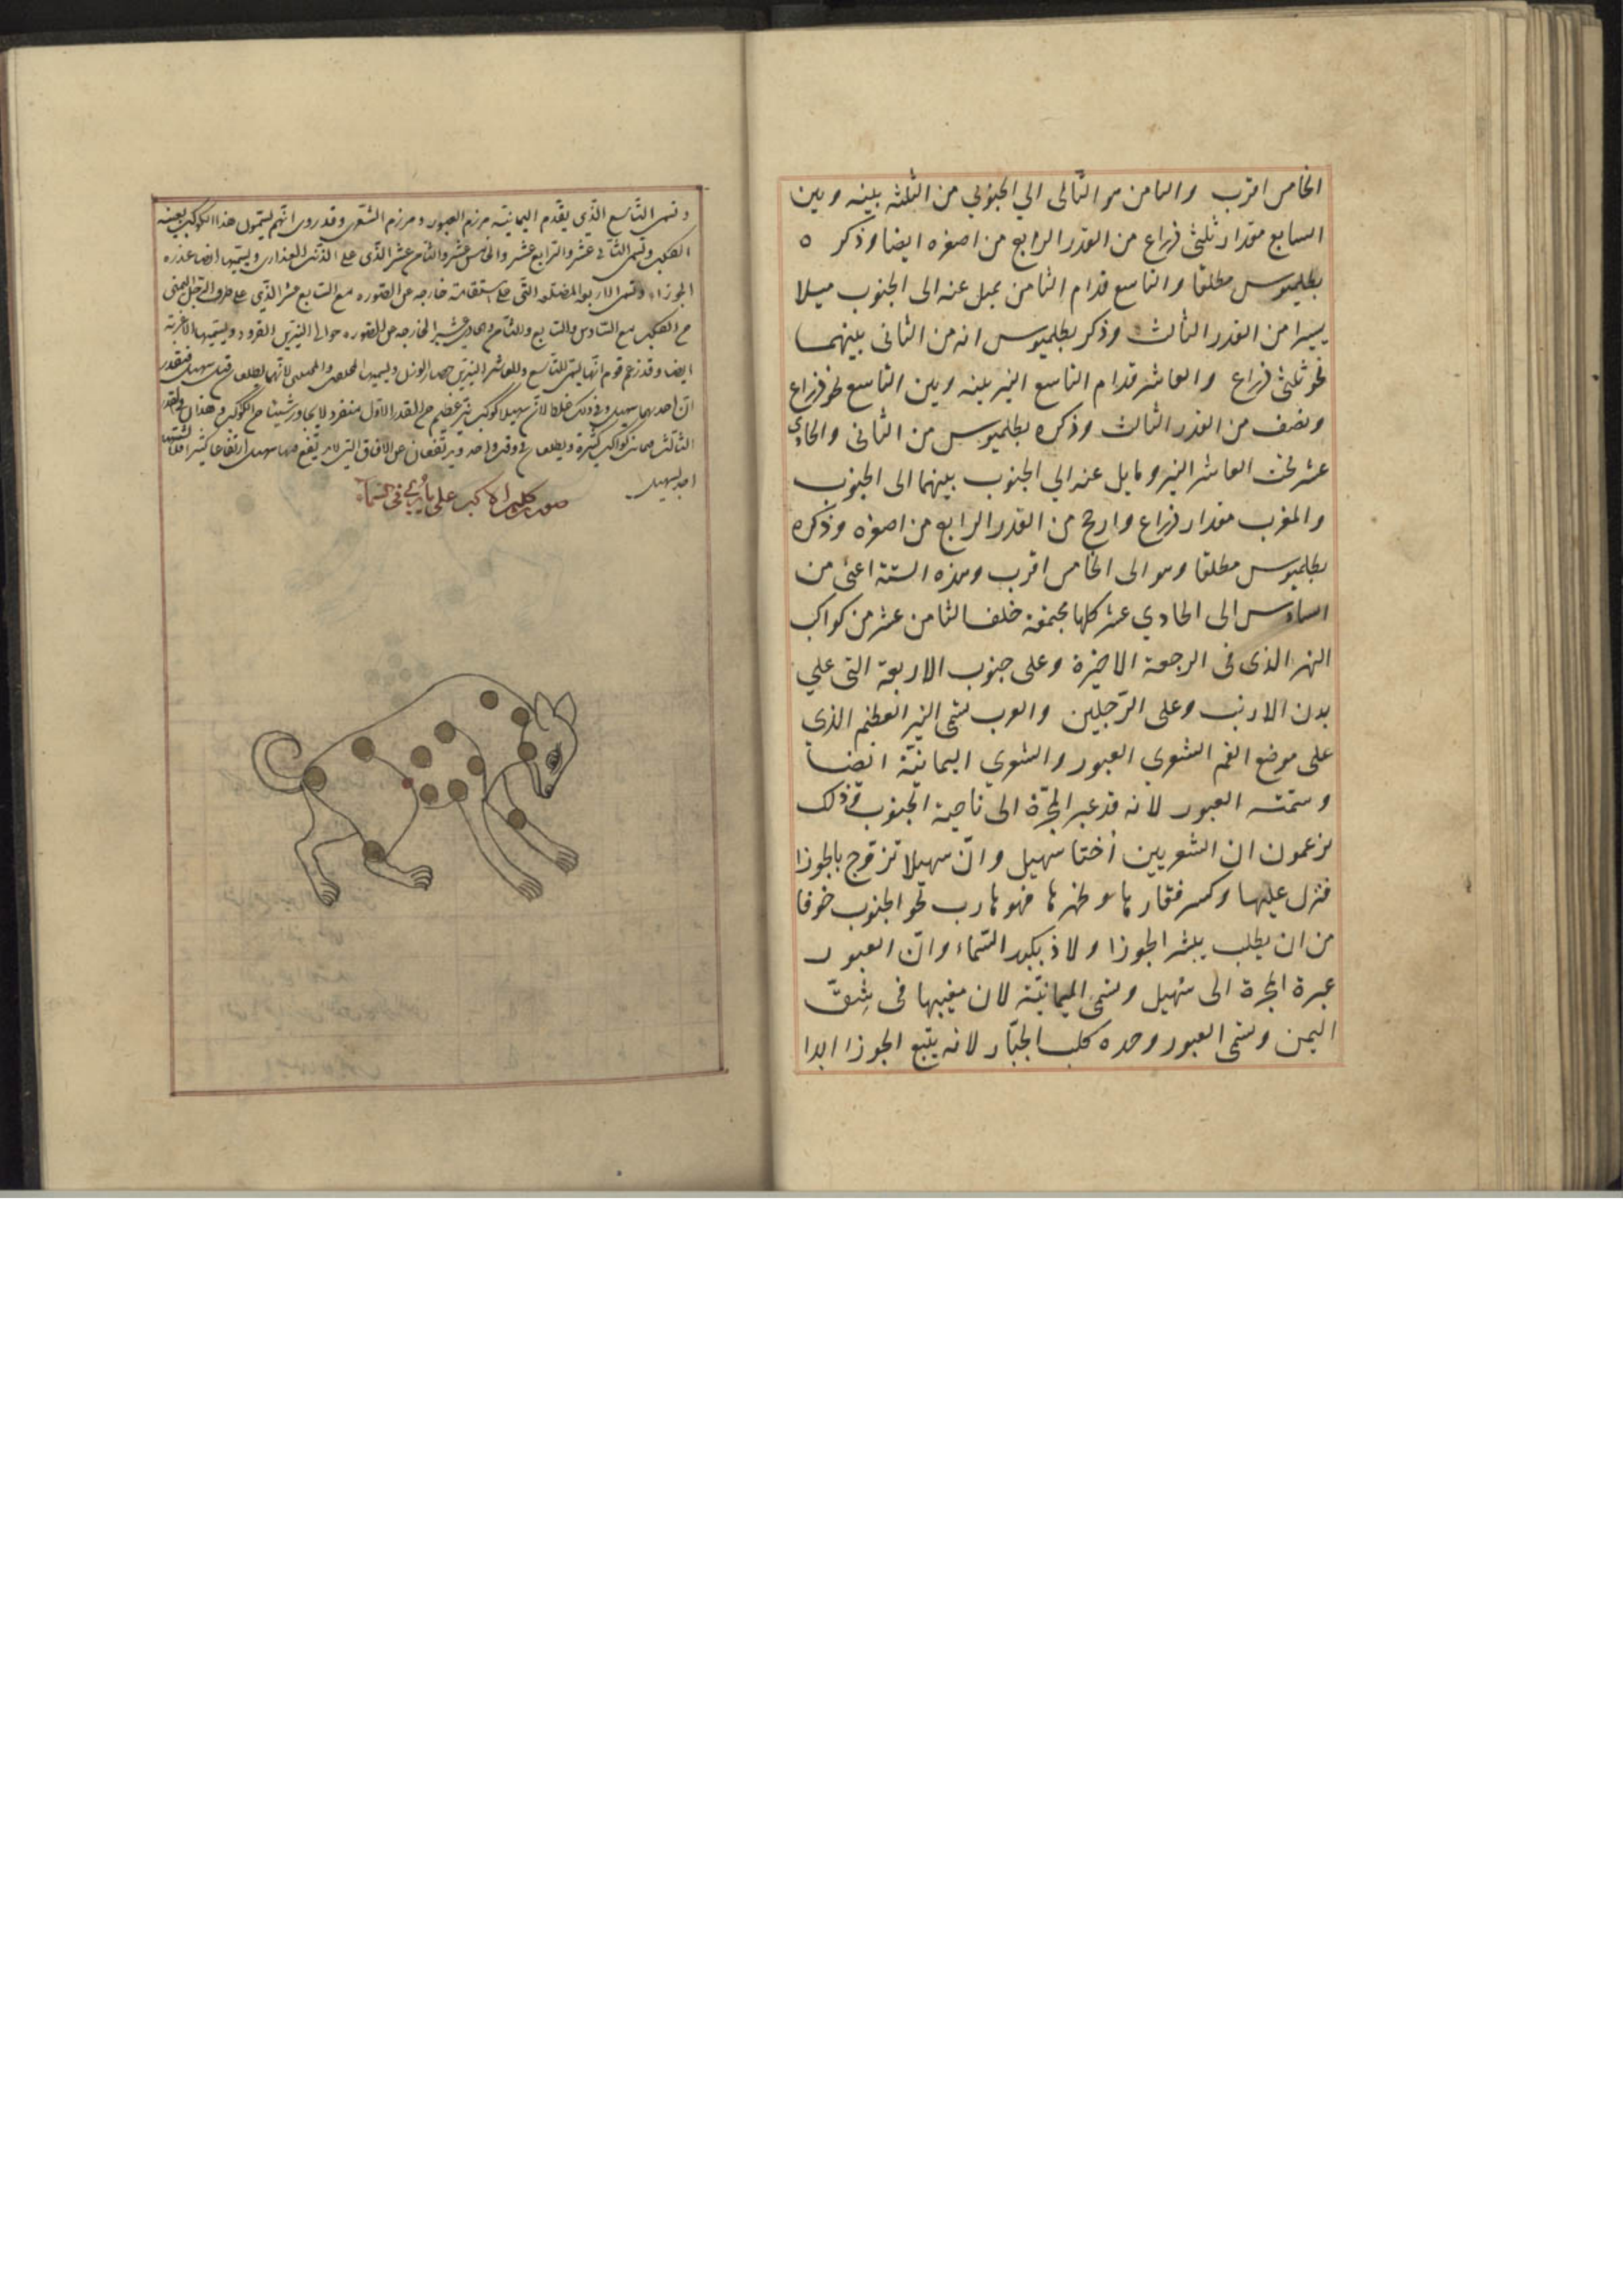 الخامس اقرب والثامن هو التالى الي الجنوبي من الثلثه بينه وبين
السابع مقدار ثلثى ذراع من القدر الرابع من اصغره ايضا وذكر ٥
بطلميوس مطلقا والتاسع قدام الثامن يميل عنه الى الجنوب ميلا
يسيرا من القدر الثالث وذكر بطلميوس انه من الثانى بينهما
نحو ثلثى ذراع والعاشر قدام التاسع النير بينه وبين التاسع نحو ذراع
ونصف من القدر الثالث وذكره بطلميوس من الثانى والحادى
عشر تحت العاشر النير ومايل عنه الي الجنوب بينهما الى الجنوب
والمغرب مقدار ذراع وارجح من القدر الرابع من اصغره وذكره
بطلميوس مطلقا وهو الى الخامس اقرب وهذه الستة اعنى من
السادس الى الحادي عشر كلها مجتمعة خلف الثامن عشر من كواكب
النهر الذى فى الرجعة الاخيرة وعلى جنوب الاربعة التى علي
بدن الارنب وعلى الرّجلين والعرب تسمى النير العظيم الذي
على موضع الفم الشعري العبور والشعري اليمانيّة ايضا
وسمّته العبور لانه قد عبر المجرّة الى ناحية الجنوب وذلك
يزعمون ان الشعريين أختا سهيل وانّ سهيلا تزوّج بالجوزا
فنزل عليها وكسر فقارها وظهرها فهو هارب نحو الجنوب خوفا
من ان يطلب بثار الجوزا ولاذ بكبد السّماء وانّ العبور
عبرة المجرة الى سهيل وسمى اليمانيّة لان مغيبها فى شِقّ
اليمن وسمى العبور وحده كلب الجبّار لانه يتبع الجوزا ابدا
وتسمى التاسع الّذي يقدم اليمانيّة مرزم العبور ومرزم الشعرى وقد روى انّهم يسمّون هذا الكوكب بعينه
الكلب وتسمى الثانى عشر والرابع عشر والخامس عشر والثامن عشر الذى على الذنب العذارى ويسمّيها ايضا عذرة
الجوزاء وتسمى الاربعة المصطفه التى على استقامة خارجه عن الصوره مع السابع عشر الذي على طرف الرجل اليمنى
من الكلب مع السادس والسابع والثامن والحادي عشر الخارجه عن الصوره حوالى النيّرين القرود ويسمّيها الاغربة
ايضا وقد زعم قوم انّها يسمى التاسع والعاشر النيّرين حضار والوزن ويسميها المحلفين والمحنثين لانّها يطلعان قبل سهيل فيقدر
انّ احدهما سهيل وفى ذلك خلطا لانّ سهيلا كوكب نيّر عظيم من القدر الاول منفرد لا يجاور شيئا من الكواكب وهذان من القدر
الثالث معهما كواكب كثيرة ويطلعان فى وقت واحد ويرتفعان عن الافاق التى لا يرتفع فيها سهيل ارتفاعا كثيرا فلا يشتبها
احد بسهيل
صورة كلب الاكبر على ما يرى فى السماء